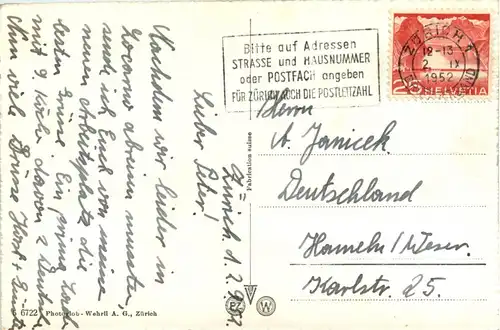 Zürich, d. 2.9.52.
Lieber Peter!
Nachdem wir leider in
Locarno abreisen mussten,
sende ich Euch von meinem
neuen Arbeitsplatz die
besten Grüsse. Ein prima Laden
mit 9 Köche davon 2 Deutsche
Nun viel Grüsse Horst +
Bitte auf Adressen
STRASSE und HAUSNUMMER
oder POSTFACH angeben
FÜR ZÜRICH AUCH DIE POSTLEITZAHL
ZÜRICH 1
12-13
2. IX
1952
HELVETIA
Herrn
A. Janicek
Deutschland
Hameln/Weser.
Karlstr. 25.
Fabrication suisse
PZ W
6722 Photoglob-Wehrli A. G., Zürich